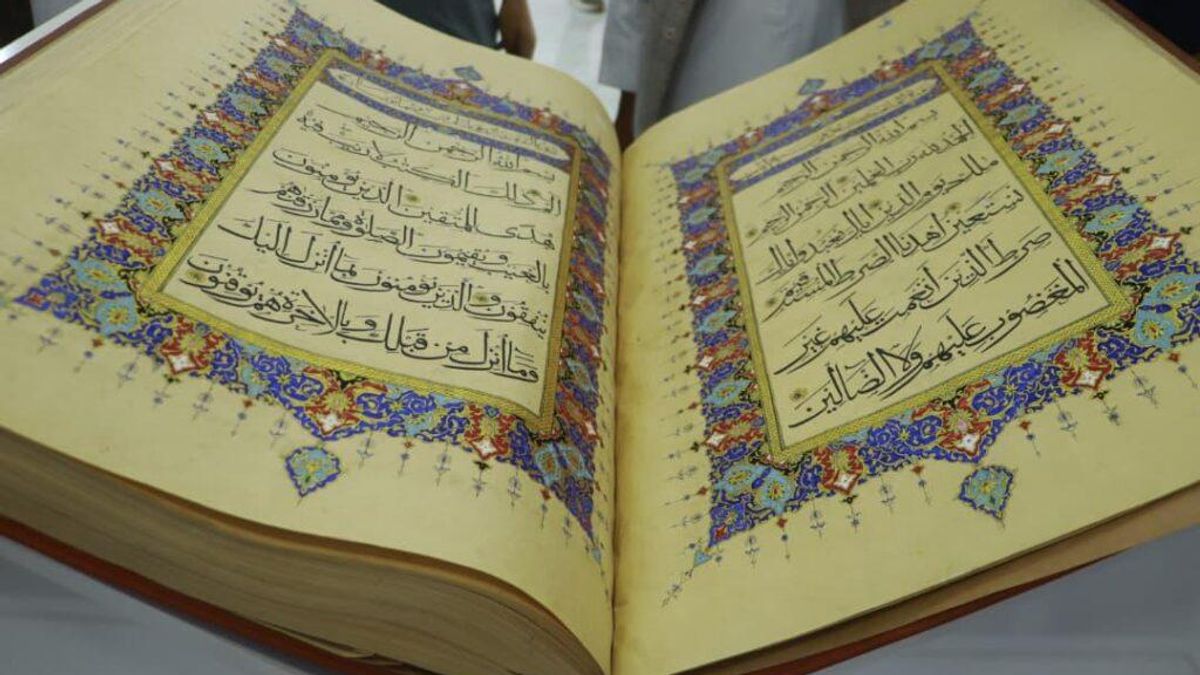 بسم الله الرحمن الرحيم
الحمد لله رب العلمين الرحمن الرحيم
ملك يوم الدين إياك نعبد وإياك
نستعين اهدنا الصرط المستقيم
صرط الذين أنعمت عليهم غير
المغضوب عليهم ولا الضالين
بسم الله الرحمن الرحيم
الم ذلك الكتب لا ريب فيه
هدى للمتقين الذين يؤمنون
بالغيب ويقيمون الصلوة ومما رزقنهم
ينفقون والذين يؤمنون بما أنزل إليك
وما أنزل من قبلك وبالآخرة هم يوقنون